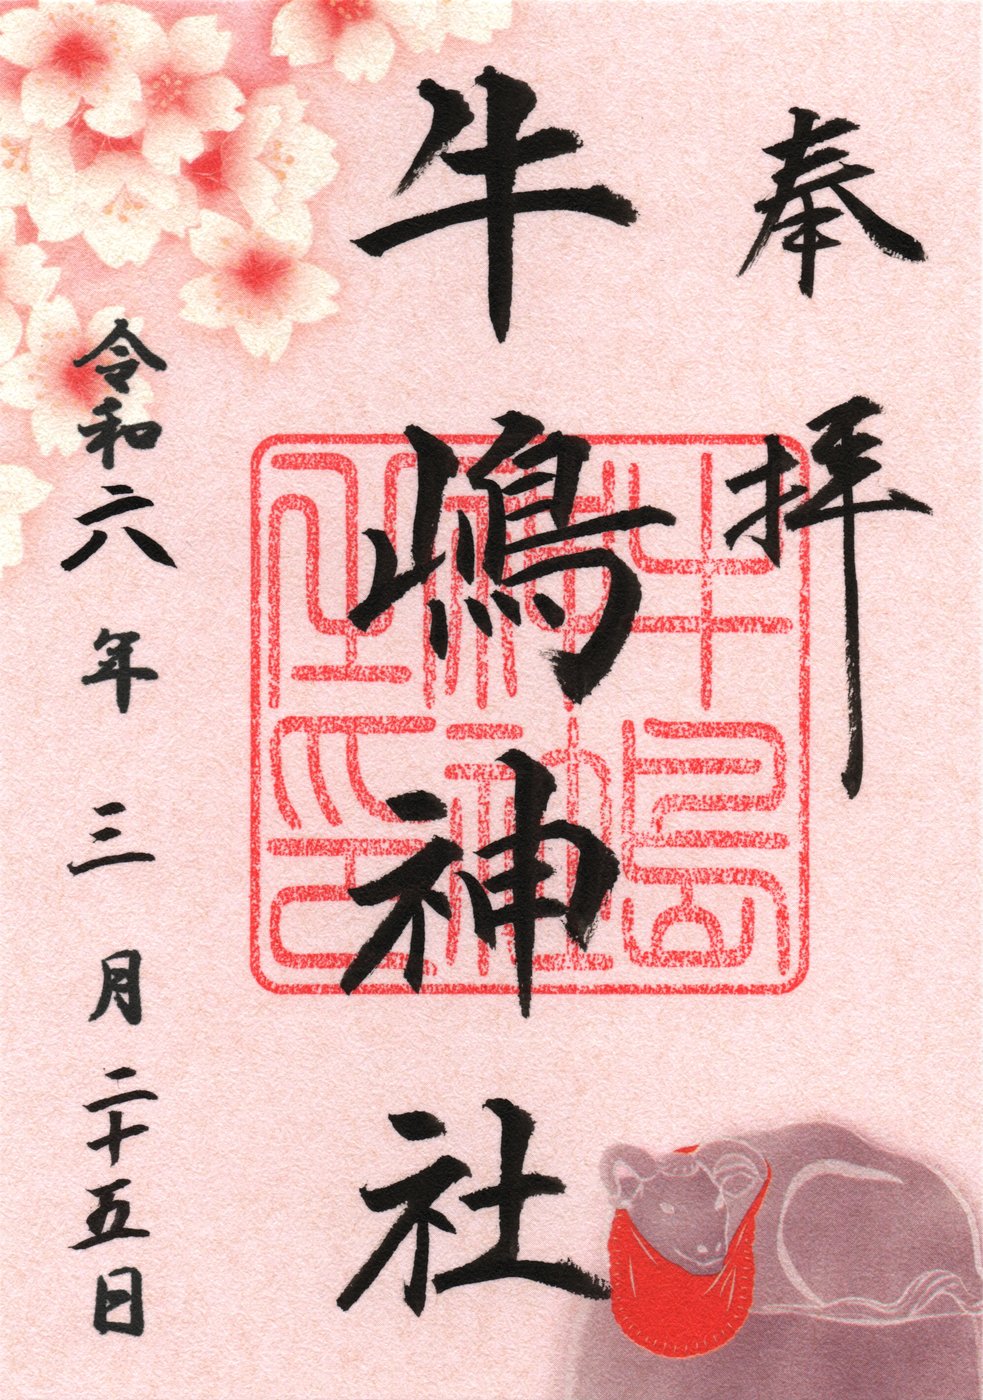 奉拝
牛嶋神社
牛嶋神社之印
令和六年三月二十五日